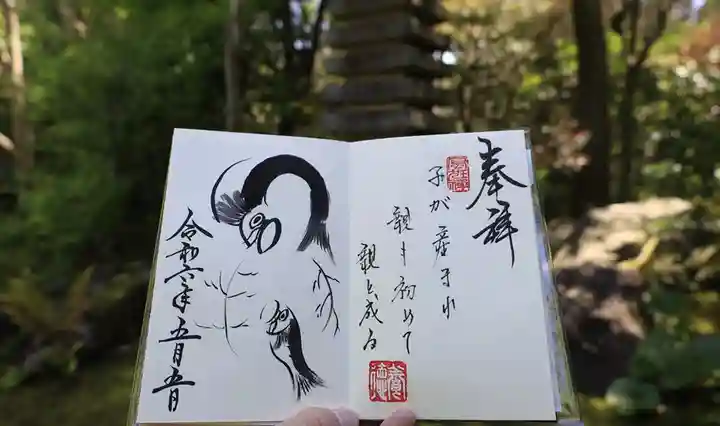 奉拝
子が産まれ
親も初めて
親と成る
令和六年五月五日